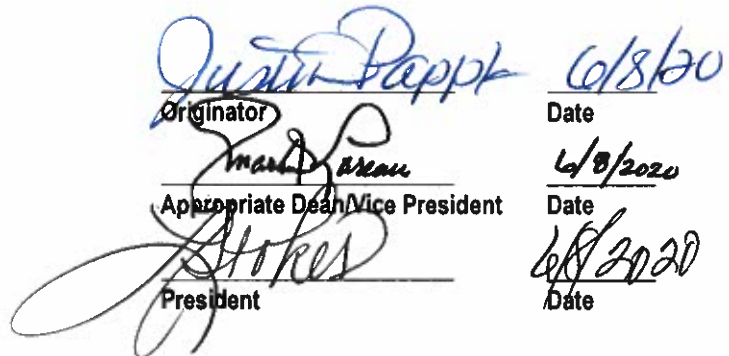 Justin Papp 6/8/20
Originator Date
Mark Lareau 6/8/2020
Appropriate Dean/Vice President Date
Stokes 6/8/2020
President Date